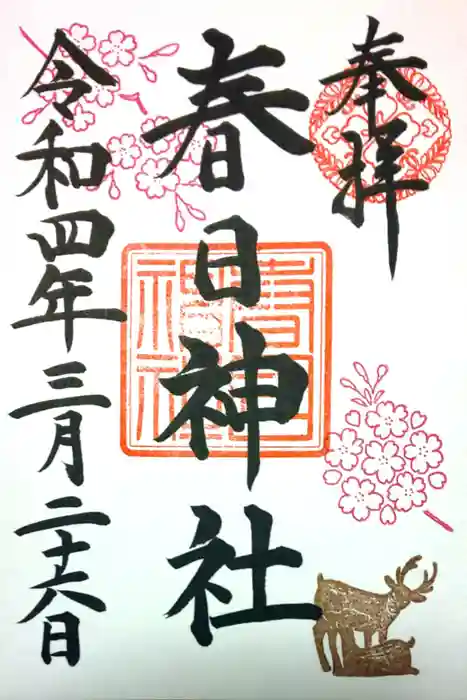 奉拝
春日神社
令和四年三月二十六日
春日神社